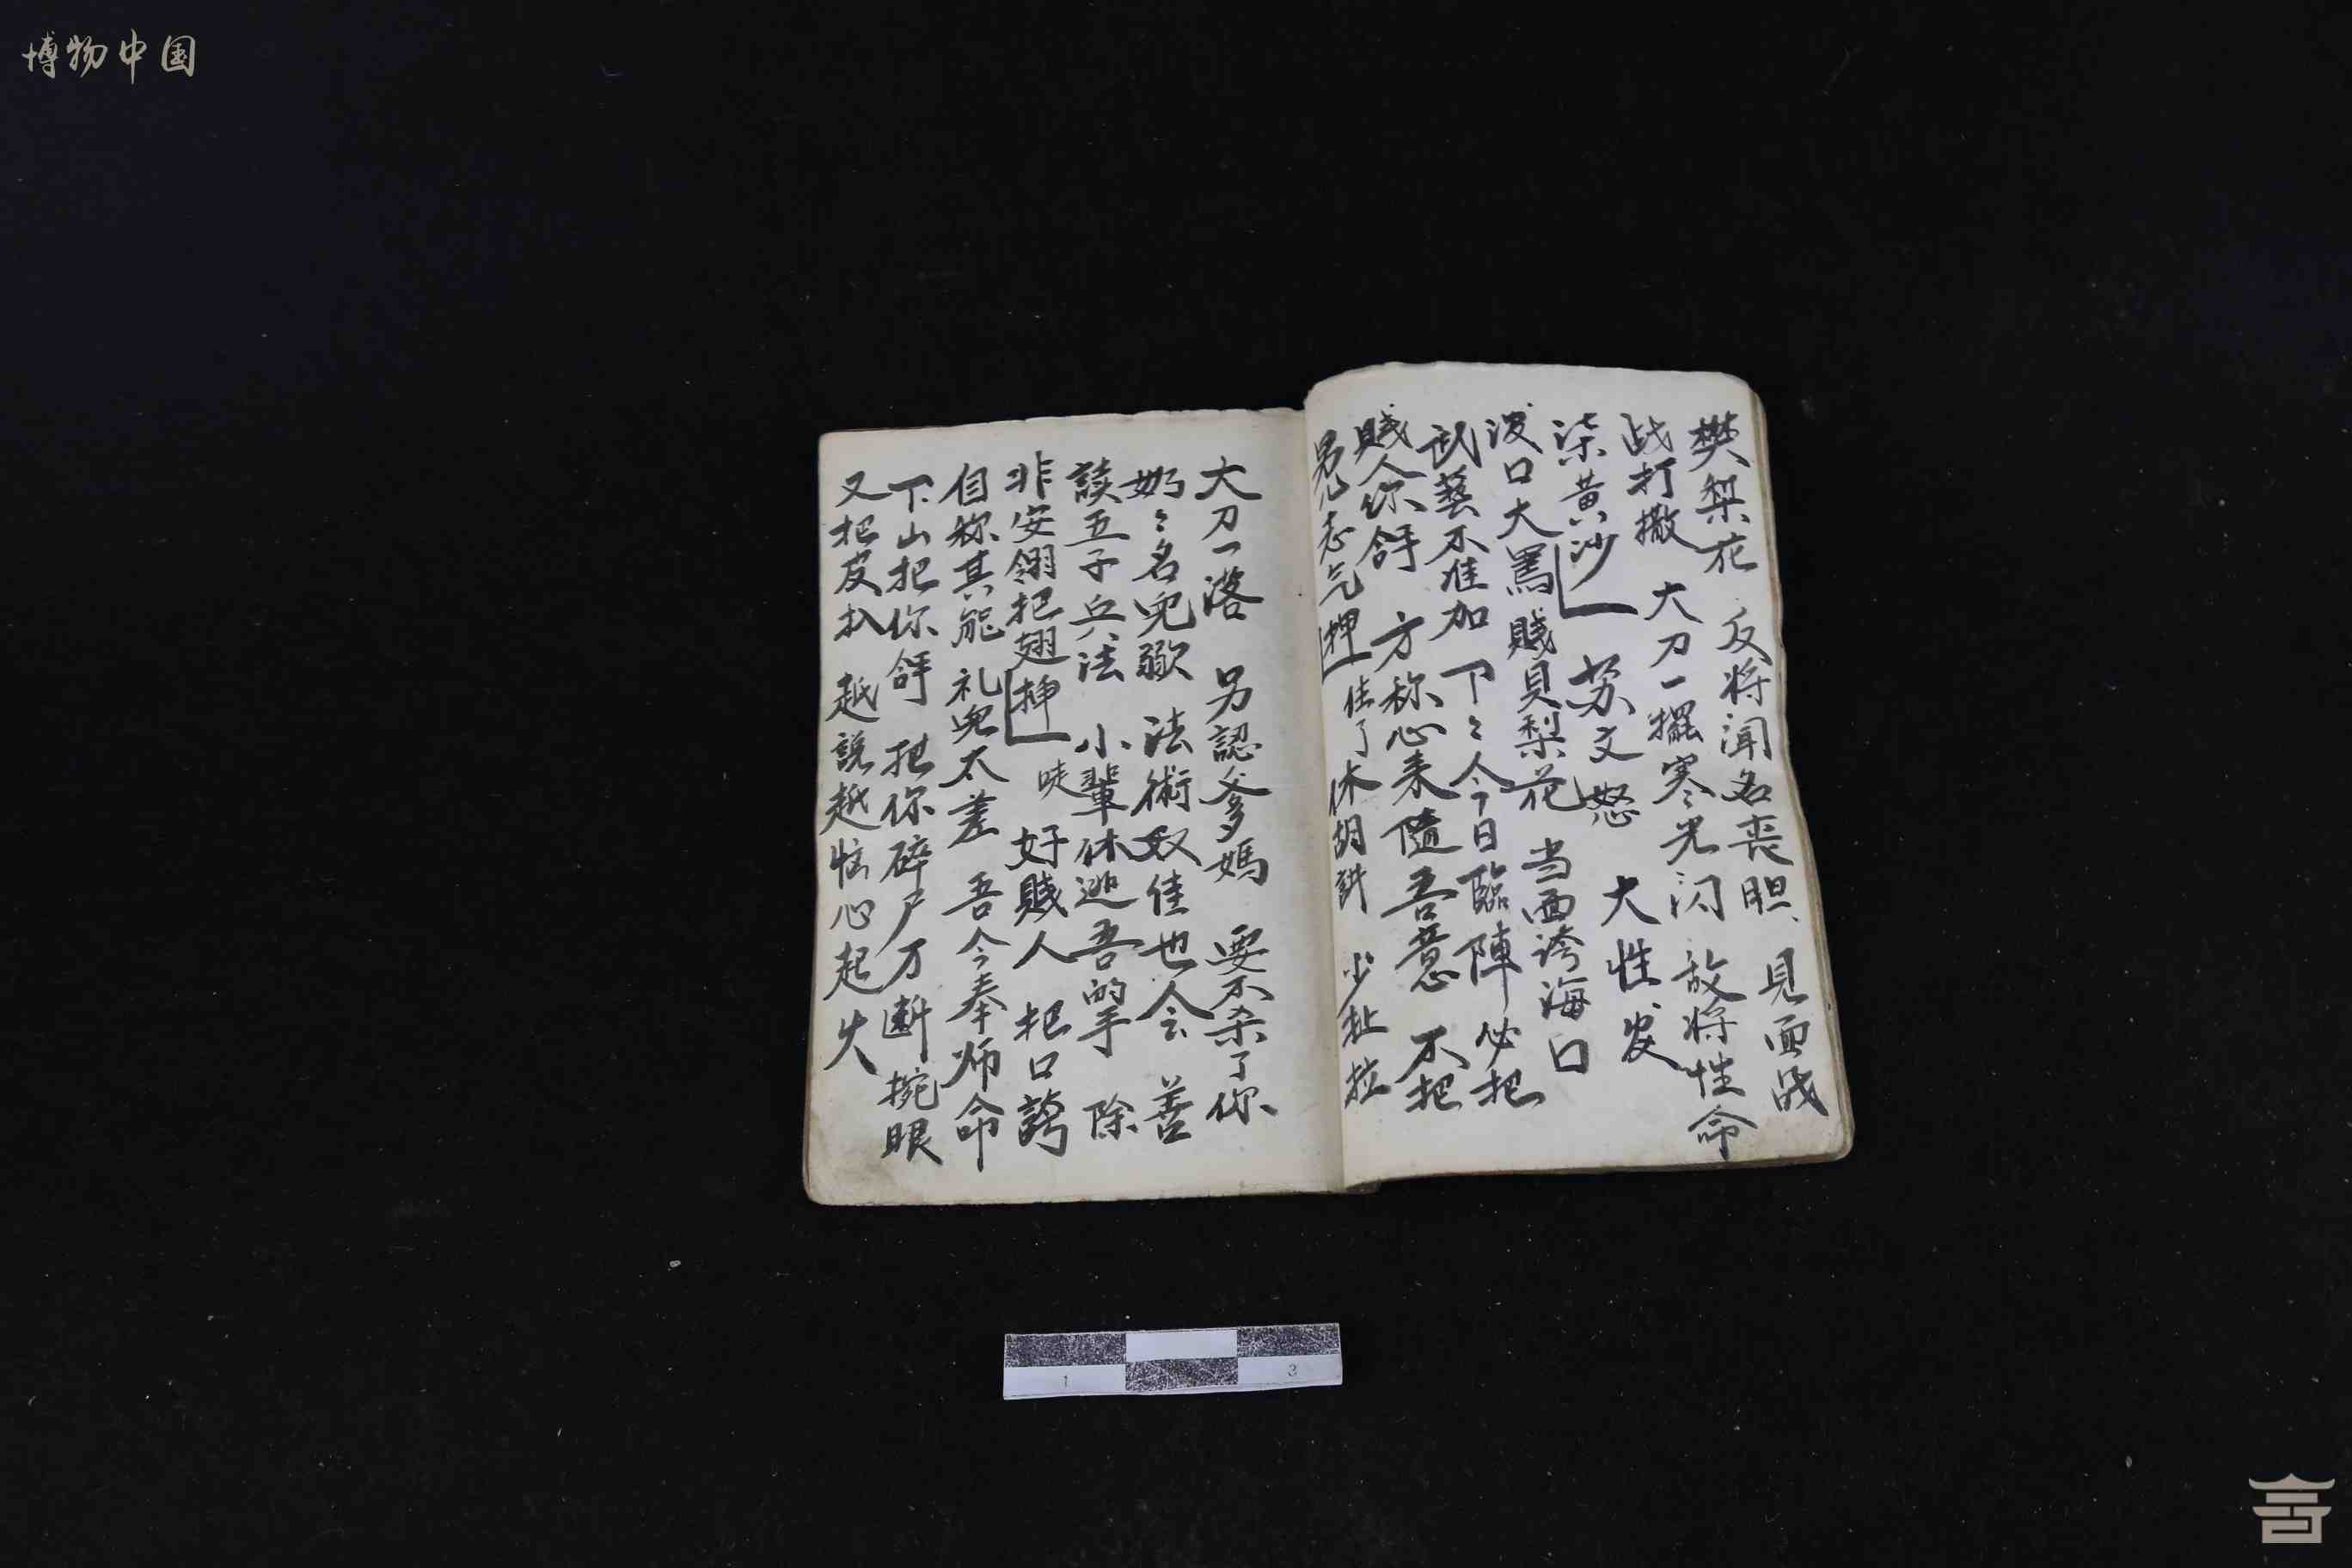 博物中国
樊梨花 反将闻名丧胆、見面战
战打撒 大刀一擺寒光闪 故将性命
染黄沙 苏文怒 大性发
没口大罵賤貝梨花 当面誇海口
武藝不准加 下〻今日臨陣必把
賤人你 方称心来隨吾意 不把
男儿志气押 住了休胡 少扯拉
大刀一落 另認爹媽 要不杀了你
奶〻名兒 法術奴佳也会 善
談五子兵法 小輩休逃吾的手 除
非安翎把翅押 唗 好賤人 把口誇
自称其能 礼兒太差 吾今奉师命
下山把你 把你碎尸万断 挖眼
又把皮扒 越說越恼心起火
1 3